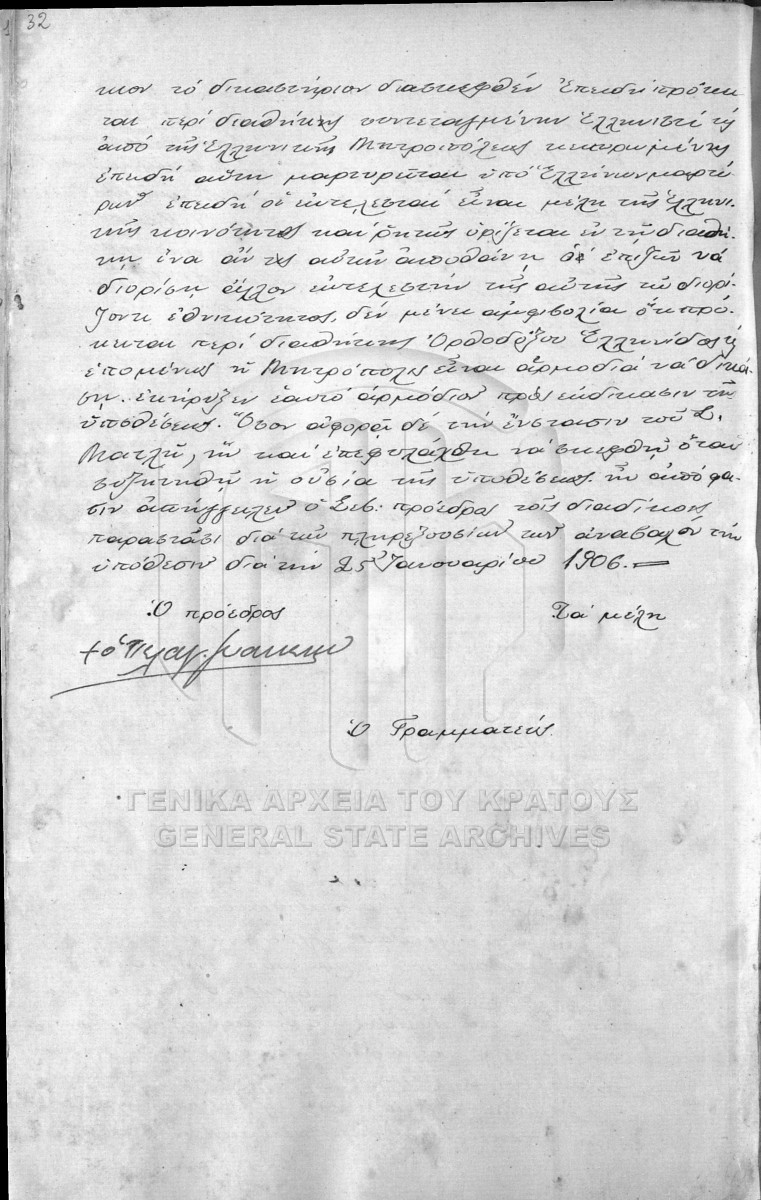 32
κτον τό δικαστήριον διασκεφθέν ἐπειδή πρόκει
ται περί διαθήκης συντεταγμένην ἑλληνιστί
ὑπό τῆς Ἑλληνικῆς Μητροπόλεως κεκυρωμένης
ἐπειδή αὕτη μαρτυρεῖται ὑπό Ἑλλήνων μαρτύ
ρων ἐπειδή οἱ ἐκτελεσταί εἶναι μέλη τῆς Ἑλληνι
κῆς κοινότητος καί ῥητῶς ὁρίζεται ἐν τῇ διαθή
κῃ ἵνα ἄν τις αὐτῶν ἀποθάνῃ ὁ ἐπιζῶν νά
διορίσῃ ἄλλον ἐκτελεστήν τῆς αὐτῆς τῷ διορί
ζοντι ἐθνικότητος, δέν μένει ἀμφιβολία ὅτι πρό
κειται περί διαθήκης Ὀρθοδόξου Ἑλληνίδος
ἑπομένως ἡ Μητρόπολις εἶναι ἁρμοδία νά δικά
σῃ. ἐκήρυξεν ἑαυτό ἁρμόδιον πρός ἐκδίκασιν τῆς
ὑποθέσεως. Ὅσον ἀφορᾷ δέ τήν ἔνστασιν τοῦ Σ.
Ματλῆ, ἥν καί ἐπεφυλάχθη νά σκεφθῇ ὅταν
συζητηθῇ ἡ οὐσία τῆς ὑποθέσεως. ἥν ἀπόφα
σιν ἀπήγγειλεν ὁ Σεβ: πρόεδρος τοῖς διαδίκοις
παραστᾶσι διά τῶν πληρεξουσίων των ἀναβαλόν τήν
ὑπόθεσιν διά τήν 25 Ἰανουαρίου 1906. =
Ὁ πρόεδρος Τά μέλη
Ὁ Γραμματεύς
ΓΕΝΙΚΑ ΑΡΧΕΙΑ ΤΟΥ ΚΡΑΤΟΥΣ
GENERAL STATE ARCHIVES